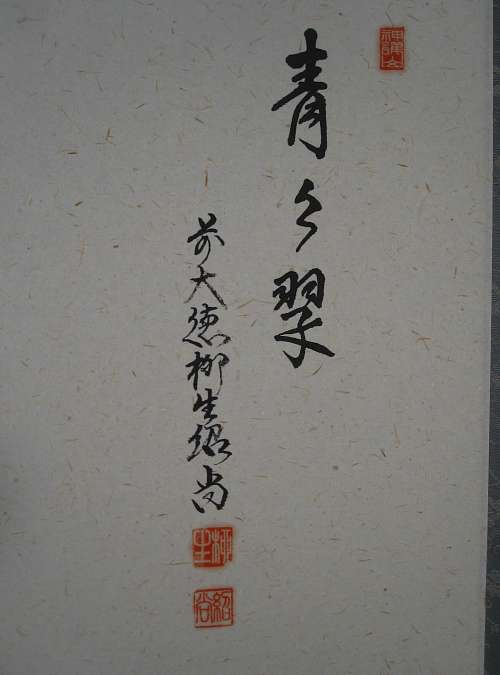 青々翠
前大徳柳生紹尚
柳生
紹尚